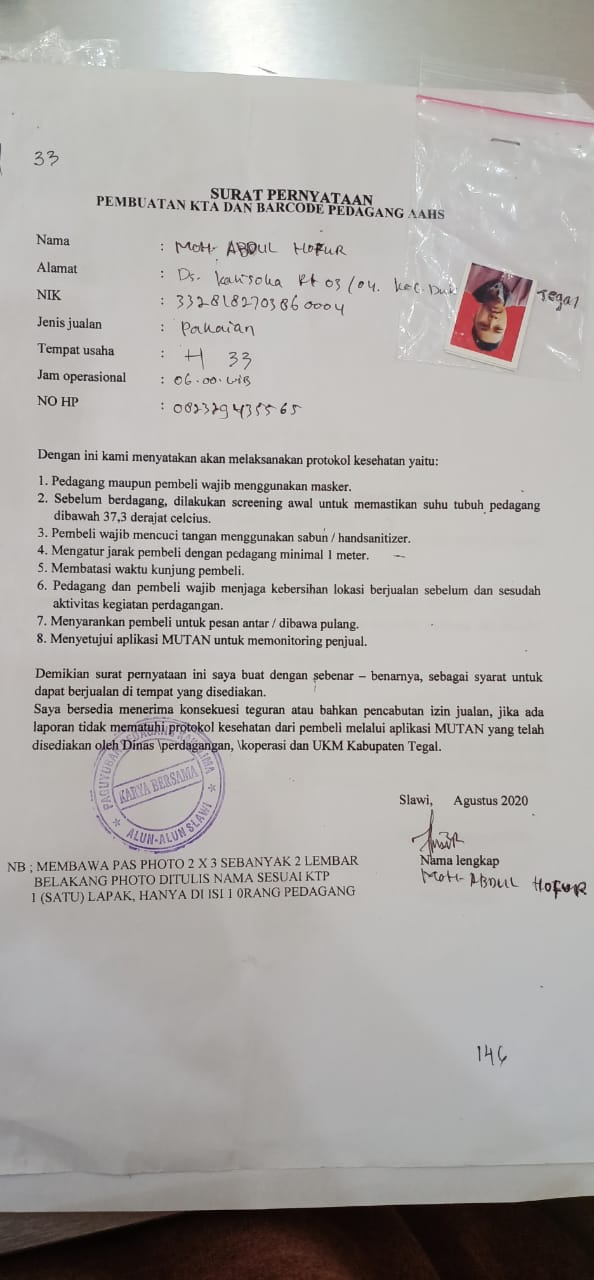 33
SURAT PERNYATAAN
PEMBUATAN KTA DAN BARCODE PEDAGANG AAHS
Nama : MOH. ABDUL HOFUR
Alamat : Ds. Kalisoka Rt 03/04. Kec. Duk Tegal
NIK : 3328182703860004
Jenis jualan : Pakaian
Tempat usaha : H 33
Jam operasional : 06.00.WIB
NO HP : 082329435565
Dengan ini kami menyatakan akan melaksanakan protokol kesehatan yaitu:
1. Pedagang maupun pembeli wajib menggunakan masker.
2. Sebelum berdagang, dilakukan screening awal untuk memastikan suhu tubuh pedagang
dibawah 37,3 derajat celcius.
3. Pembeli wajib mencuci tangan menggunakan sabun / handsanitizer.
4. Mengatur jarak pembeli dengan pedagang minimal 1 meter.
5. Membatasi waktu kunjung pembeli.
6. Pedagang dan pembeli wajib menjaga kebersihan lokasi berjualan sebelum dan sesudah
aktivitas kegiatan perdagangan.
7. Menyarankan pembeli untuk pesan antar / dibawa pulang.
8. Menyetujui aplikasi MUTAN untuk memonitoring penjual.
Demikian surat pernyataan ini saya buat dengan sebenar – benarnya, sebagai syarat untuk
dapat berjualan di tempat yang disediakan.
Saya bersedia menerima konsekuesi teguran atau bahkan pencabutan izin jualan, jika ada
laporan tidak mematuhi protokol kesehatan dari pembeli melalui aplikasi MUTAN yang telah
disediakan oleh Dinas \perdagangan, \koperasi dan UKM Kabupaten Tegal.
PAGUYUBAN PEDAGANG
KARYA BERSAMA
ALUN-ALUN SLAWI
Slawi, Agustus 2020
Nama lengkap
MOH. ABDUL HOFUR
NB ; MEMBAWA PAS PHOTO 2 X 3 SEBANYAK 2 LEMBAR
BELAKANG PHOTO DITULIS NAMA SESUAI KTP
1 (SATU) LAPAK, HANYA DI ISI 1 0RANG PEDAGANG
146